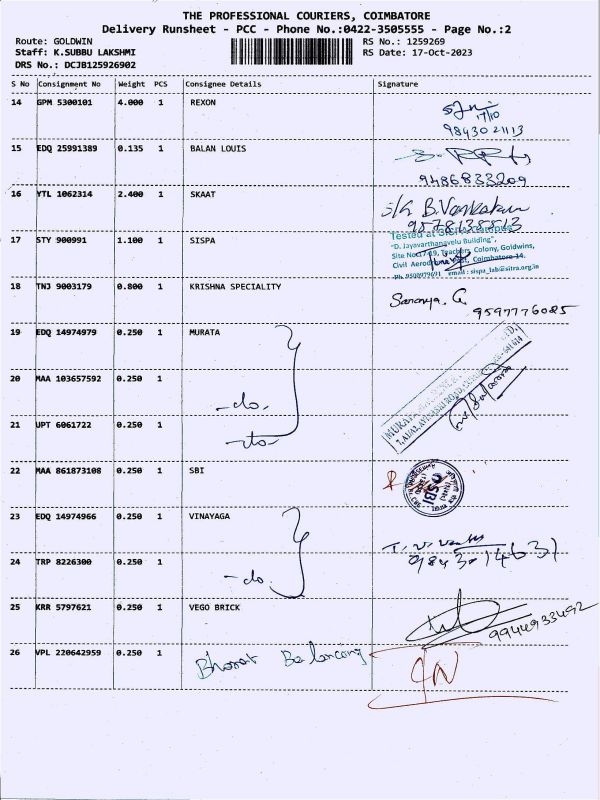 THE PROFESSIONAL COURIERS, COIMBATORE
Delivery Runsheet - PCC - Phone No.:0422-3505555 - Page No.:2
Route: GOLDWIN RS No.: 1259269
Staff: K.SUBBU LAKSHMI RS Date: 17-Oct-2023
DRS No.: DCJB125926902
S No Consignment No Weight PCS Consignee Details Signature
14 GPM 5300101 4.000 1 REXON
17/10
9843021113
15 EDQ 25991389 0.135 1 BALAN LOUIS
9486833209
16 YTL 1062314 2.400 1 SKAAT
17 STY 900991 1.100 1 SISPA
Tested at
"D. Jayavarthanavelu Building",
Site No.17-19, Teachers Colony, Goldwins,
Civil Coimbatore-14.
email : sispa_lab@sitra.org.in
18 TNJ 9003179 0.800 1 KRISHNA SPECIALITY
Saranya. G
9597776085
19 EDQ 14974979 0.250 1 MURATA
20 MAA 103657592 0.250 1
-do.
21 UPT 6061722 0.250 1
22 MAA 861873108 0.250 1 SBI
SBI
23 EDQ 14974966 0.250 1 VINAYAGA
24 TRP 8226300 0.250 1
-do.
25 KRR 5797621 0.250 1 VEGO BRICK
9944933492
26 VPL 220642959 0.250 1 Bharat Balancing